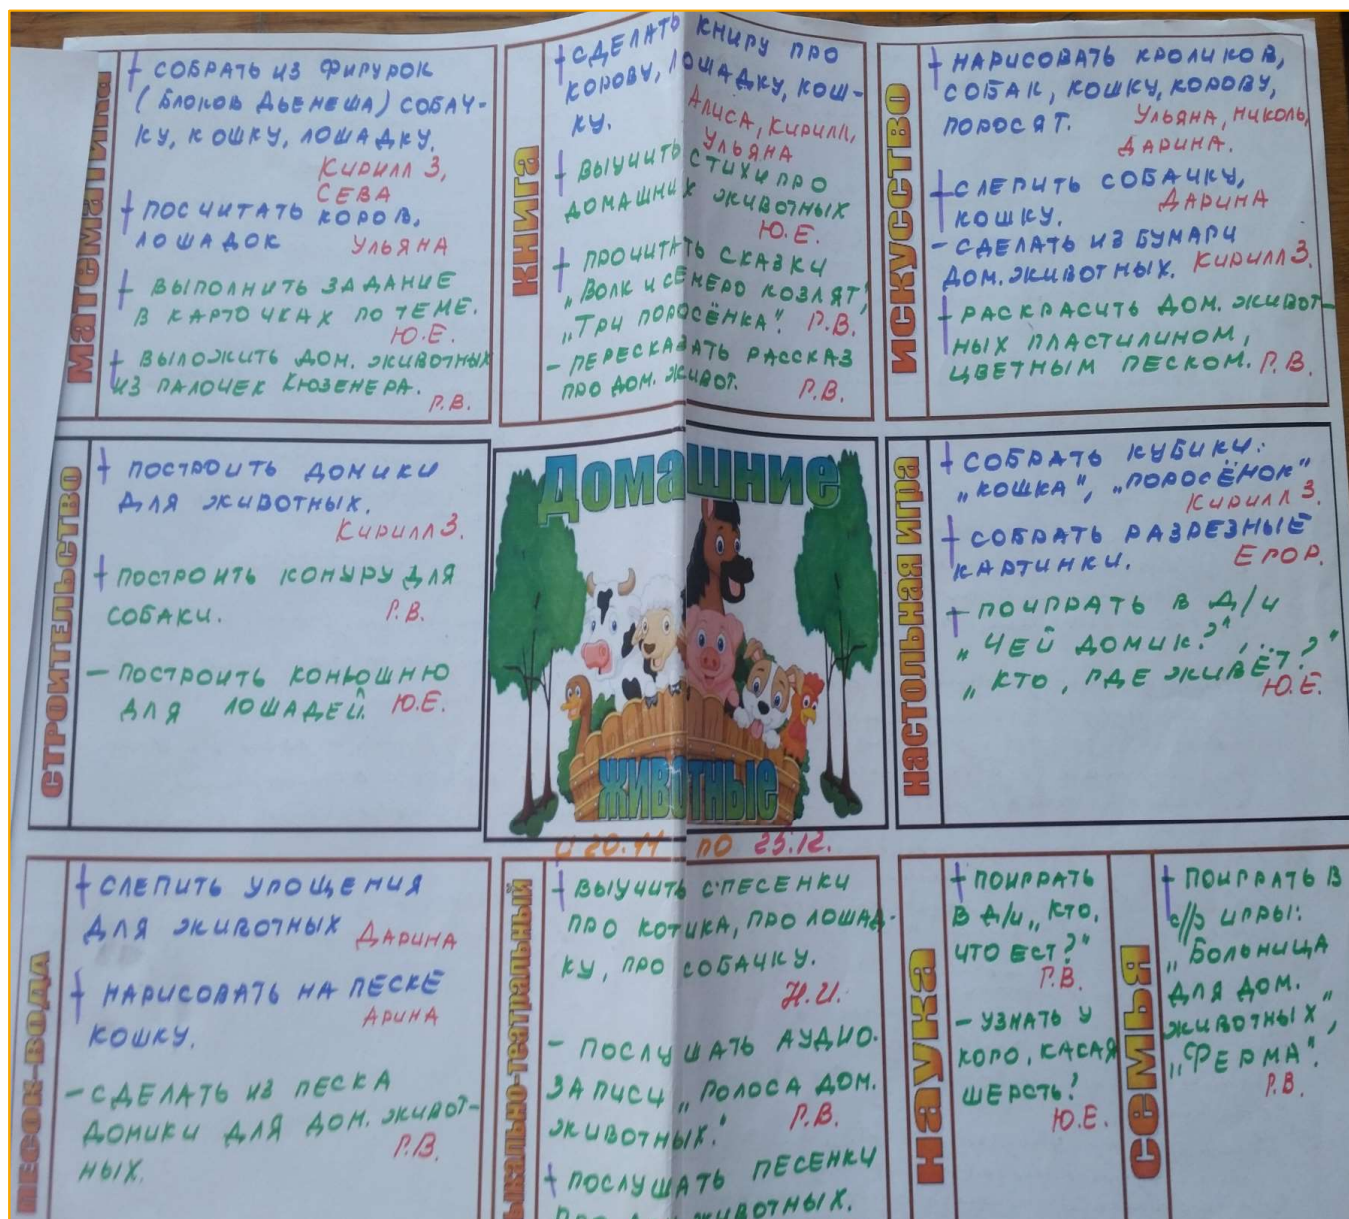 математика
+ СОБРАТЬ ИЗ ФИГУРОК
(БЛОКОВ ДЬЕНЕША) СОБАЧ-
КУ, КОШКУ, ЛОШАДКУ.
КИРИЛЛ З,
СЕВА
+ ПОСЧИТАТЬ КОРОВ,
ЛОШАДОК УЛЬЯНА
+ ВЫПОЛНИТЬ ЗАДАНИЕ
В КАРТОЧКАХ ПО ТЕМЕ.
Ю.Е.
+ ВЫЛОЖИТЬ ДОМ. ЖИВОТНЫХ
ИЗ ПАЛОЧЕК КЮЗЕНЕРА.
Г.В.
книга
+ СДЕЛАТЬ КНИГУ ПРО
КОРОВУ, ЛОШАДКУ, КОШ-
КУ. АЛИСА, КИРИЛЛ,
УЛЬЯНА
+ ВЫУЧИТЬ СТИХИ ПРО
ДОМАШНИХ ЖИВОТНЫХ
Ю.Е.
+ ПРОЧИТАТЬ СКАЗКИ
„ВОЛК И СЕМЕРО КОЗЛЯТ",
„ТРИ ПОРОСЁНКА". Г.В.
- ПЕРЕСКАЗАТЬ РАССКАЗ
ПРО ДОМ. ЖИВОТ. Г.В.
искусство
+ НАРИСОВАТЬ КРОЛИКОВ,
СОБАК, КОШКУ, КОРОВУ,
ПОРОСЯТ. УЛЬЯНА, НИКОЛЬ,
ДАРИНА.
+ СЛЕПИТЬ СОБАЧКУ,
КОШКУ. ДАРИНА
- СДЕЛАТЬ ИЗ БУМАГИ
ДОМ. ЖИВОТНЫХ. КИРИЛЛ З.
+ РАСКРАСИТЬ ДОМ. ЖИВОТ-
НЫХ ПЛАСТИЛИНОМ,
ЦВЕТНЫМ ПЕСКОМ. Г.В.
строительство
+ ПОСТРОИТЬ ДОМИКИ
ДЛЯ ЖИВОТНЫХ.
КИРИЛЛ З.
+ ПОСТРОИТЬ КОНУРУ ДЛЯ
СОБАКИ. Г.В.
- ПОСТРОИТЬ КОНЮШНЮ
ДЛЯ ЛОШАДЕЙ. Ю.Е.
Домашние
животные
20.11 ПО 25.12.
настольная игра
+ СОБРАТЬ КУБИКИ:
„КОШКА", „ПОРОСЁНОК"
КИРИЛЛ З.
+ СОБРАТЬ РАЗРЕЗНЫЕ
КАРТИНКИ. ЕГОР.
+ ПОИГРАТЬ В Д/И
„ЧЕЙ ДОМИК?",
„КТО, ГДЕ ЖИВЁТ?"
Ю.Е.
песок-вода
+ СЛЕПИТЬ УГОЩЕНИЯ
ДЛЯ ЖИВОТНЫХ ДАРИНА
+ НАРИСОВАТЬ НА ПЕСКЕ
КОШКУ. АРИНА
- СДЕЛАТЬ ИЗ ПЕСКА
ДОМИКИ ДЛЯ ДОМ. ЖИВОТ-
НЫХ. Г.В.
ыкально-театральный
+ ВЫУЧИТЬ ПЕСЕНКИ
ПРО КОТИКА, ПРО ЛОШАД-
КУ, ПРО СОБАЧКУ.
Н.И.
- ПОСЛУШАТЬ АУДИО-
ЗАПИСИ „ГОЛОСА ДОМ.
ЖИВОТНЫХ." Г.В.
+ ПОСЛУШАТЬ ПЕСЕНКИ
ЖИВОТНЫХ.
наука
+ ПОИГРАТЬ
В Д/И „КТО,
ЧТО ЕСТ?"
Г.В.
- УЗНАТЬ У
КОГО, КАКАЯ
ШЕРСТЬ?
Ю.Е.
семья
+ ПОИГРАТЬ В
С/Р ИГРЫ:
„БОЛЬНИЦА
ДЛЯ ДОМ.
ЖИВОТНЫХ",
„ФЕРМА".
Г.В.